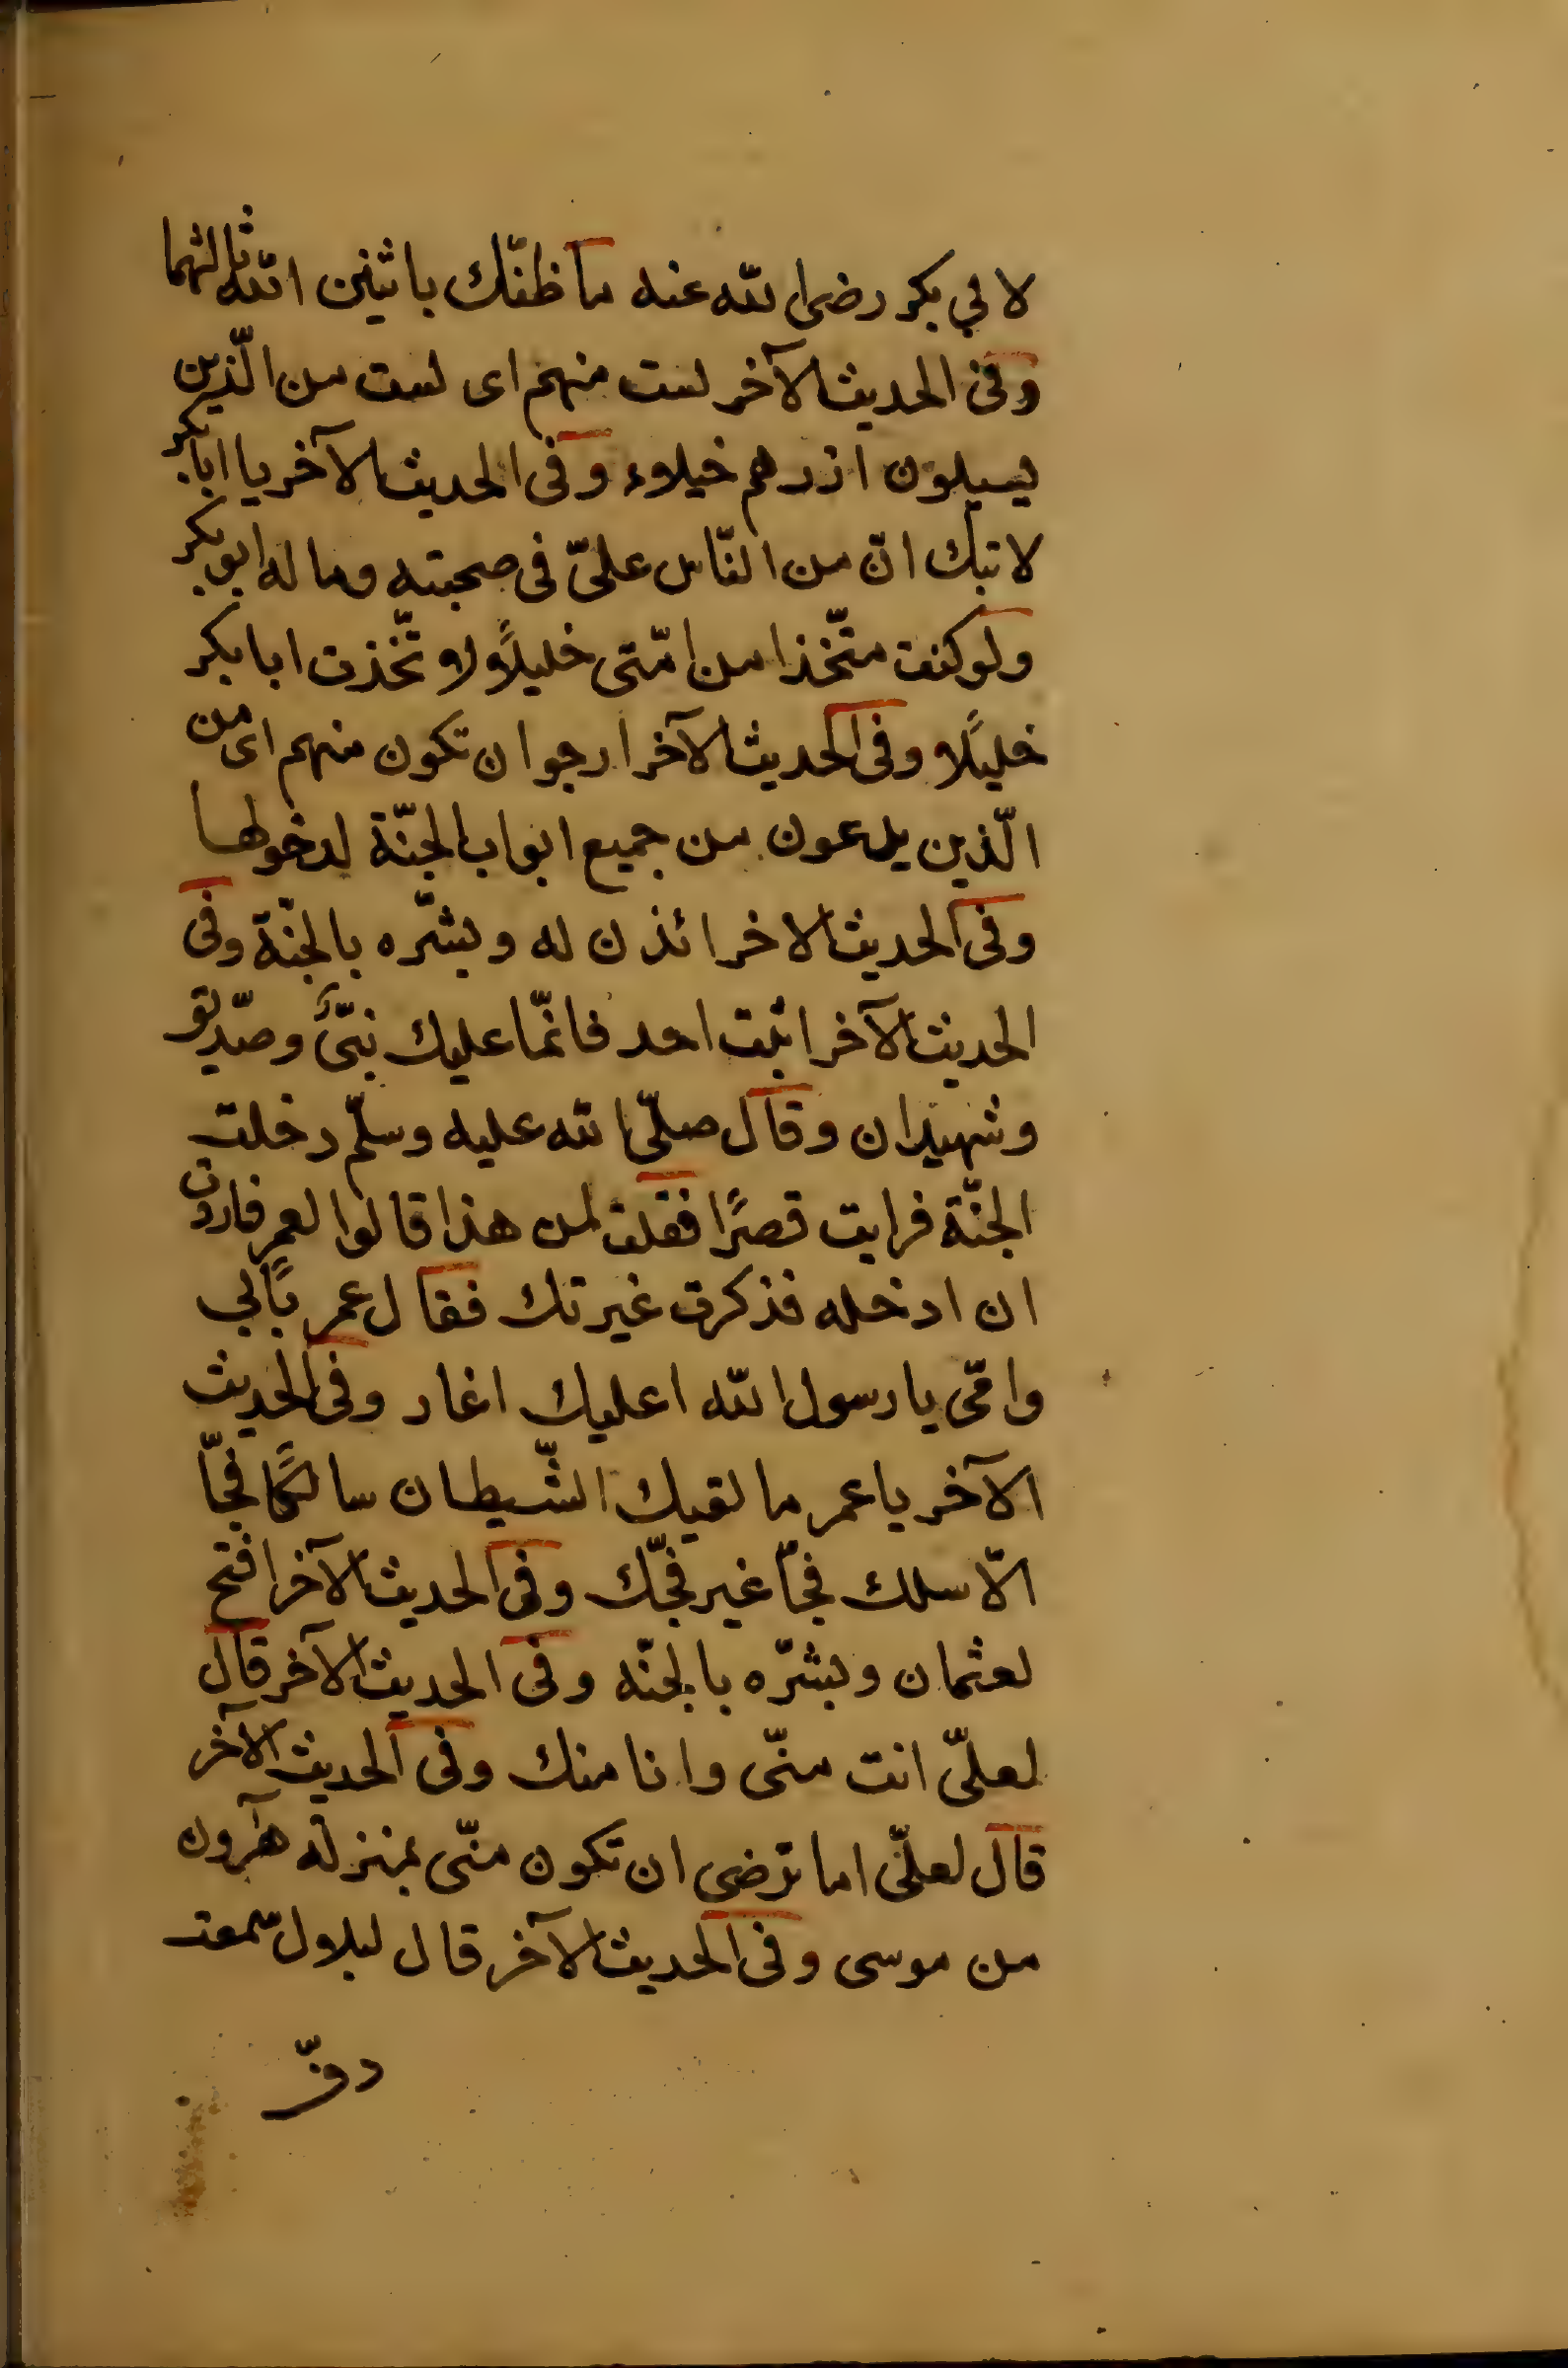 لابي بكر رضى الله عنه ما ظنّك باثنين الله ثالثهما
وفى الحديث الآخر لست منهم اى لست من الّذين
يسبلون ازرهم خيلاء وفى الحديث الآخر يا ابا بكر
لا تبك انّ من النّاس علىّ فى صحبته وماله ابو بكر
ولو كنت متّخذا من امّتى خليلًا ولا تّخذت ابا بكر
خليلًا وفى الحديث الآخر ارجو ان تكون منهم اى من
الّذين يدعون من جميع ابواب الجنّة لدخولها
وفى الحديث الاخر ائذن له وبشّره بالجنّة وفى
الحديث الآخر اثبت احد فانّما عليك نبىٌّ وصدّيق
وشهيدان وقال صلّى الله عليه وسلّم دخلت
الجنّة فرايت قصرًا فقلت لمن هذا قالوا لعمر فاردت
ان ادخله فذكرت غيرتك فقال عمر بابي
وامّى يا رسول الله اعليك اغار وفى الحديث
الآخر يا عمر ما لقيك الشّيطان سالكًا فجّا
الّا سلك فجّا غير فجّك وفى الحديث الآخر افتح
لعثمان وبشّره بالجنّه وفى الحديث الآخر قال
لعلىّ انت منّى وانا منك وفى الحديث الآخر
قال لعلىّ اما ترضى ان تكون منّى بمنزلة هرون
من موسى وفى الحديث الآخر قال لبلال سمعت
دفّ